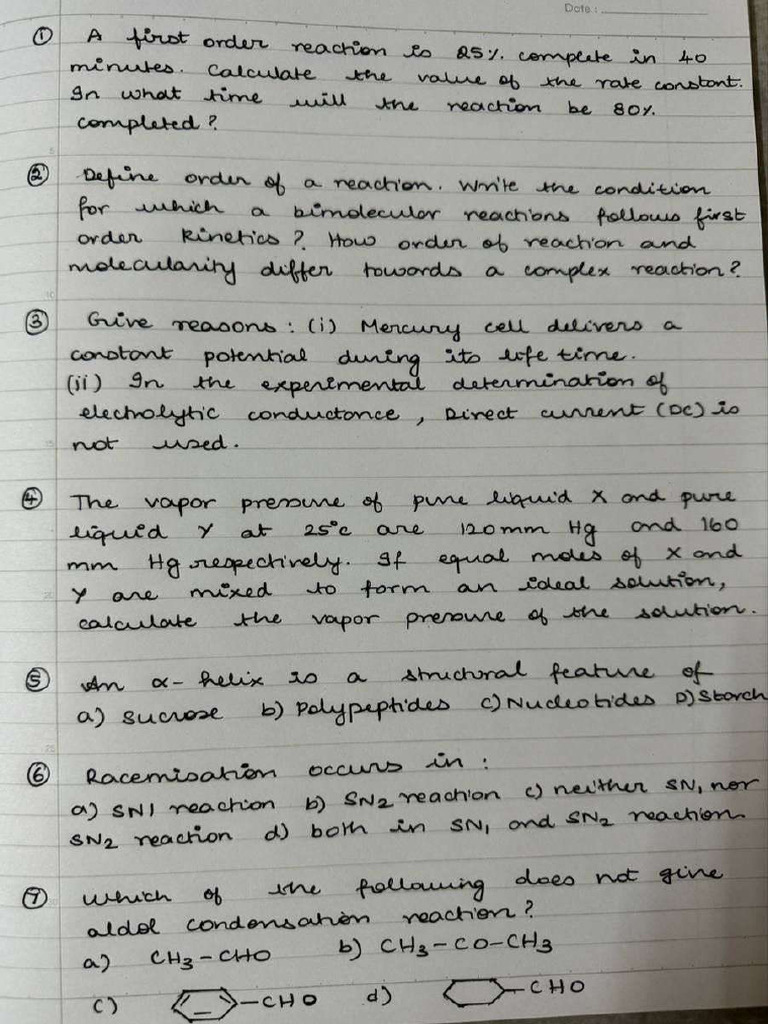 Date :
① A first order reaction is 25% complete in 40
minutes. Calculate the value of the rate constant.
In what time will the reaction be 80%
completed?
② Define order of a reaction. Write the condition
for which a bimolecular reactions follows first
order kinetics? How order of reaction and
molecularity differ towards a complex reaction?
③ Give reasons: (i) Mercury cell delivers a
constant potential during its life time.
(ii) In the experimental determination of
electrolytic conductance, Direct current (DC) is
not used.
④ The vapor pressure of pure liquid X and pure
liquid Y at 25°c are 120mm Hg and 160
mm Hg respectively. If equal moles of X and
Y are mixed to form an ideal solution,
calculate the vapor pressure of the solution.
⑤ An α-helix is a structural feature of
a) sucrose b) Polypeptides c) Nucleotides D) Starch
⑥ Racemisation occurs in :
a) SN1 reaction b) SN2 reaction c) neither SN1 nor
SN2 reaction d) both in SN1 and SN2 reaction
⑦ which of the following does not give
aldol condensation reaction?
a) CH3-CHO b) CH3-CO-CH3
c) -CHO d) -CHO